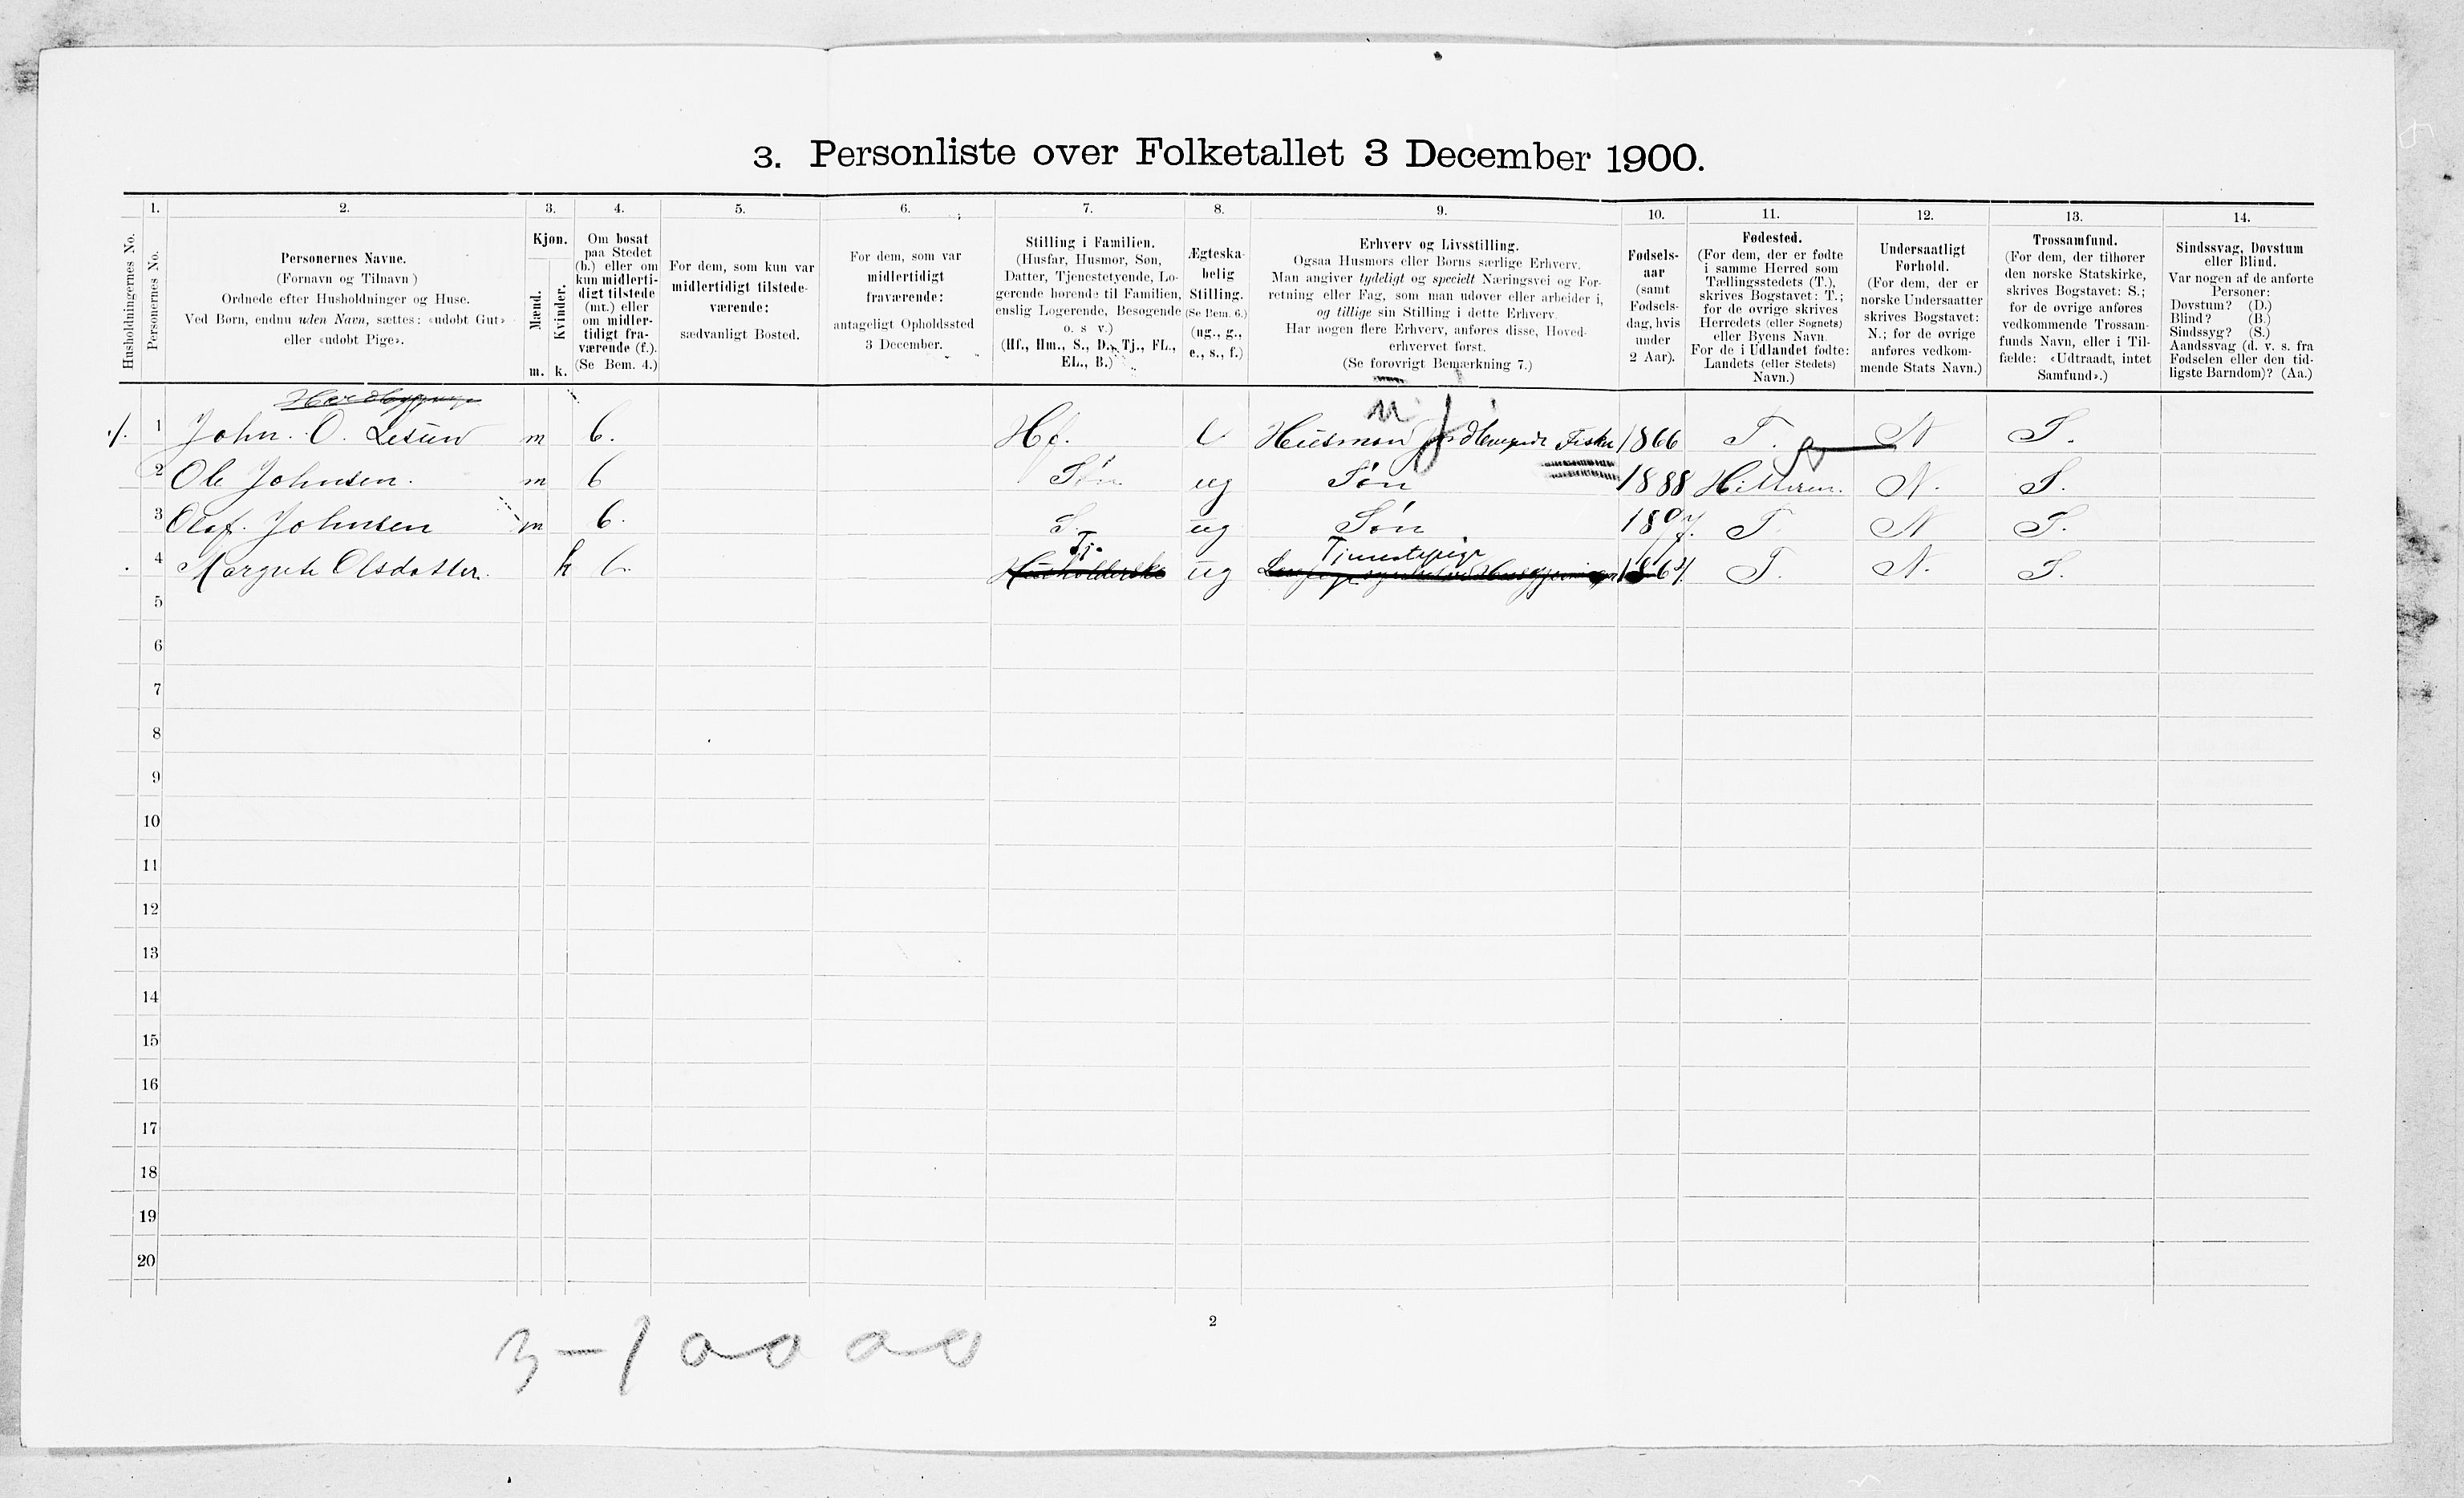 3. Personliste over Folketallet 3 December 1900.
1. 2. 3. 4. 5. 6. 7. 8. 9. 10. 11. 12. 13. 14.
Husholdningernes No.
Personernes No.
Personernes Navne.
(Fornavn og Tilnavn)
Ordnede efter Husholdninger og Huse.
Ved Børn, endnu uden Navn, sættes: «udøbt Gut»
eller «udøbt Pige».
Kjøn.
Mænd.
Kvinder.
m. k.
Om bosat
paa Stedet
(b.) eller om
kun midlerti-
digt tilstede
(mt.) eller
om midler-
tidigt fra-
værende (f.).
(Se Bem. 4.)
For dem, som kun var
midlertidigt tilstede-
værende:
sædvanligt Bosted.
For dem, som var
midlertidigt
fraværende:
antageligt Opholdssted
3 December.
Stilling i Familien.
(Husfar, Husmor, Søn,
Datter, Tjenestetyende, Lo-
gerende hørende til Familien,
enslig Logerende, Besøgende
o. s v.)
(Hf., Hm., S., D., Tj., FL.,
EL., B.)
Ægteska-
belig
Stilling.
(Se Bem. 6.)
(ug., g.,
e., s., f.)
Erhverv og Livsstilling.
Ogsaa Husmors eller Børns særlige Erhverv.
Man angiver tydeligt og specielt Næringsvei og For-
retning eller Fag, som man udøver eller arbeider i,
og tillige sin Stilling i dette Erhverv.
Har nogen flere Erhverv, anføres disse, Hoved-
erhvervet først.
(Se forøvrigt Bemærkning 7.)
Fødsels-
aar
(samt
Fødsels-
dag, hvis
under
2 Aar).
Fødested.
(For dem, der er fødte
i samme Herred som
Tællingsstedets (T.),
skrives Bogstavet: T.;
for de øvrige skrives
Herredets (eller Sognets)
eller Byens Navn.
For de i Udlandet fødte:
Landets (eller Stedets)
Navn.)
Undersaatligt
Forhold.
(For dem, der er
norske Undersaatter
skrives Bogstavet:
N.; for de øvrige
anføres vedkom-
mende Stats Navn.)
Trossamfund.
(For dem, der tilhører
den norske Statskirke,
skrives Bogstavet: S.;
for de øvrige anføres
vedkommende Trossam-
funds Navn, eller i Til-
fælde: «Udtraadt, intet
Samfund».)
Sindssvag, Døvstum
eller Blind.
Var nogen af de anførte
Personer:
Døvstum? (D.)
Blind? (B.)
Sindssyg? (S.)
Aandssvag (d. v. s. fra
Fødselen eller den tid-
ligste Barndom)? (Aa.)
1 John. O. m b. Hf. e Husmand Fisker 1866 T. N S.
2 Ole Johnsen. m b Søn ug Søn 1888 Hitteren. N. S.
3 Olaf. Johnsen m b. S. ug Søn 1897. T N S.
Tj. Tjenestepige
4 Margrete Olsdatter. k b. Husholderske ug 1864 T. N. S.
5
6
7
8
9
10
11
12
13
14
15
16
17
18
19
20
2
3-1 0-0 0-0